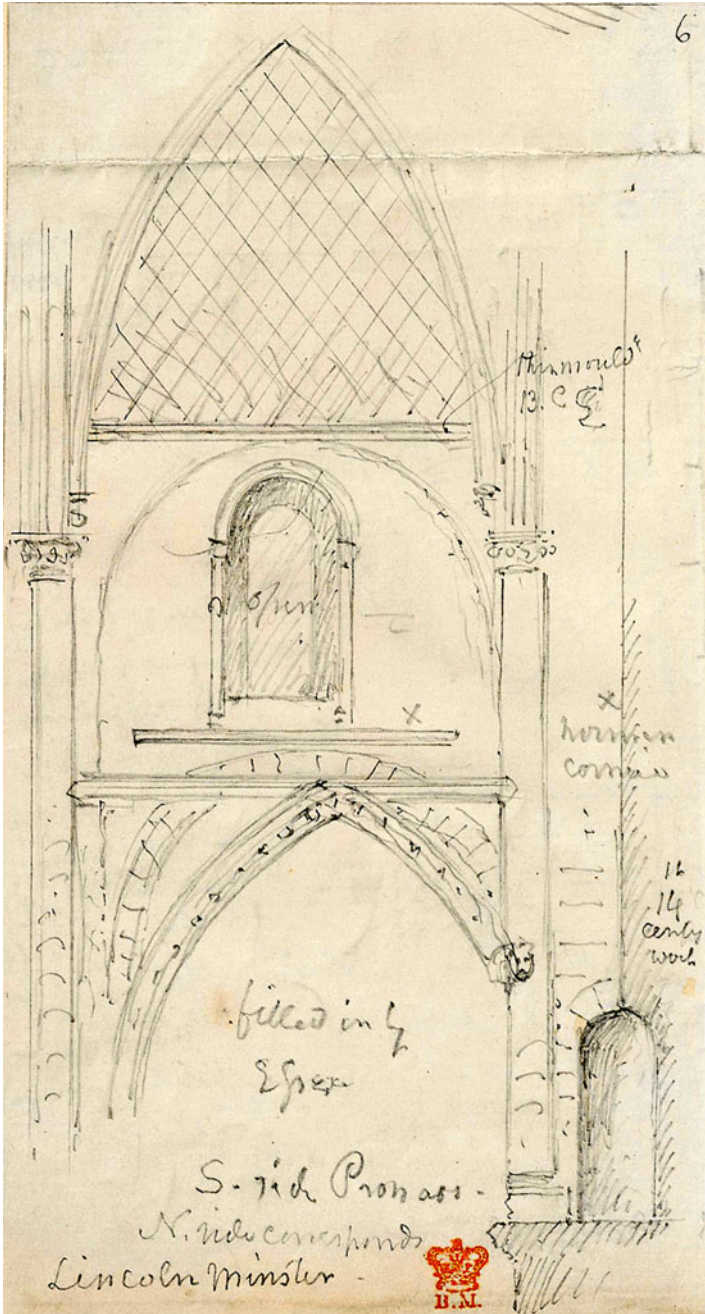 6
thin mould^g
13. C
open
x
x
norman
cornice
16
14
centy
work
filled in by
Essex
S. side Pronaos.
N. side corresponds
Lincoln Minster.
B.M.